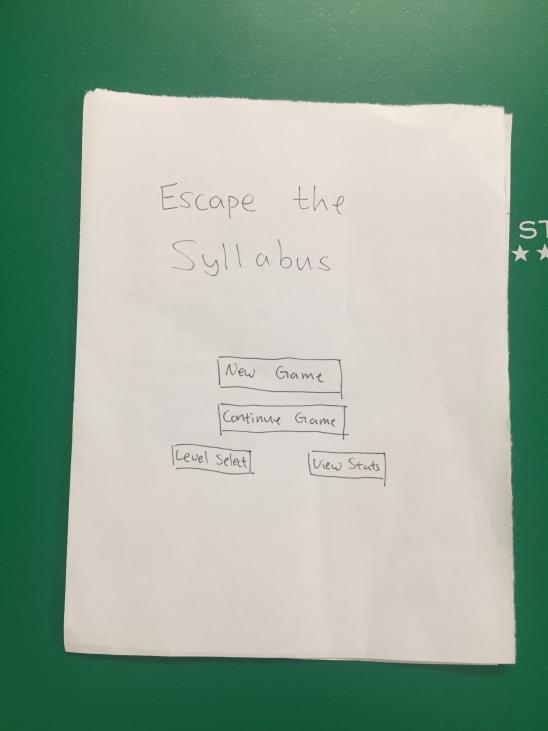 Escape the
Syllabus
New Game
Continue Game
Level Select View Stats
ST